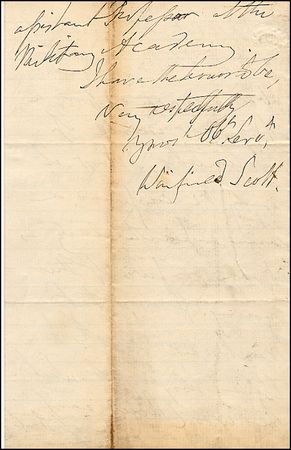 assistant Professor at the
Military Academy.
I have the honor to be,
Very respectfully
Your Obt Servt,
Winfield Scott.